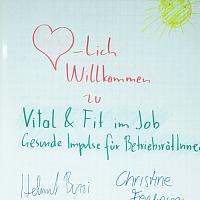 -Lich
Willkommen
zu
Vital & Fit im Job
Gesunde Impulse für BetriebsrätInnen
Helmut
Christine